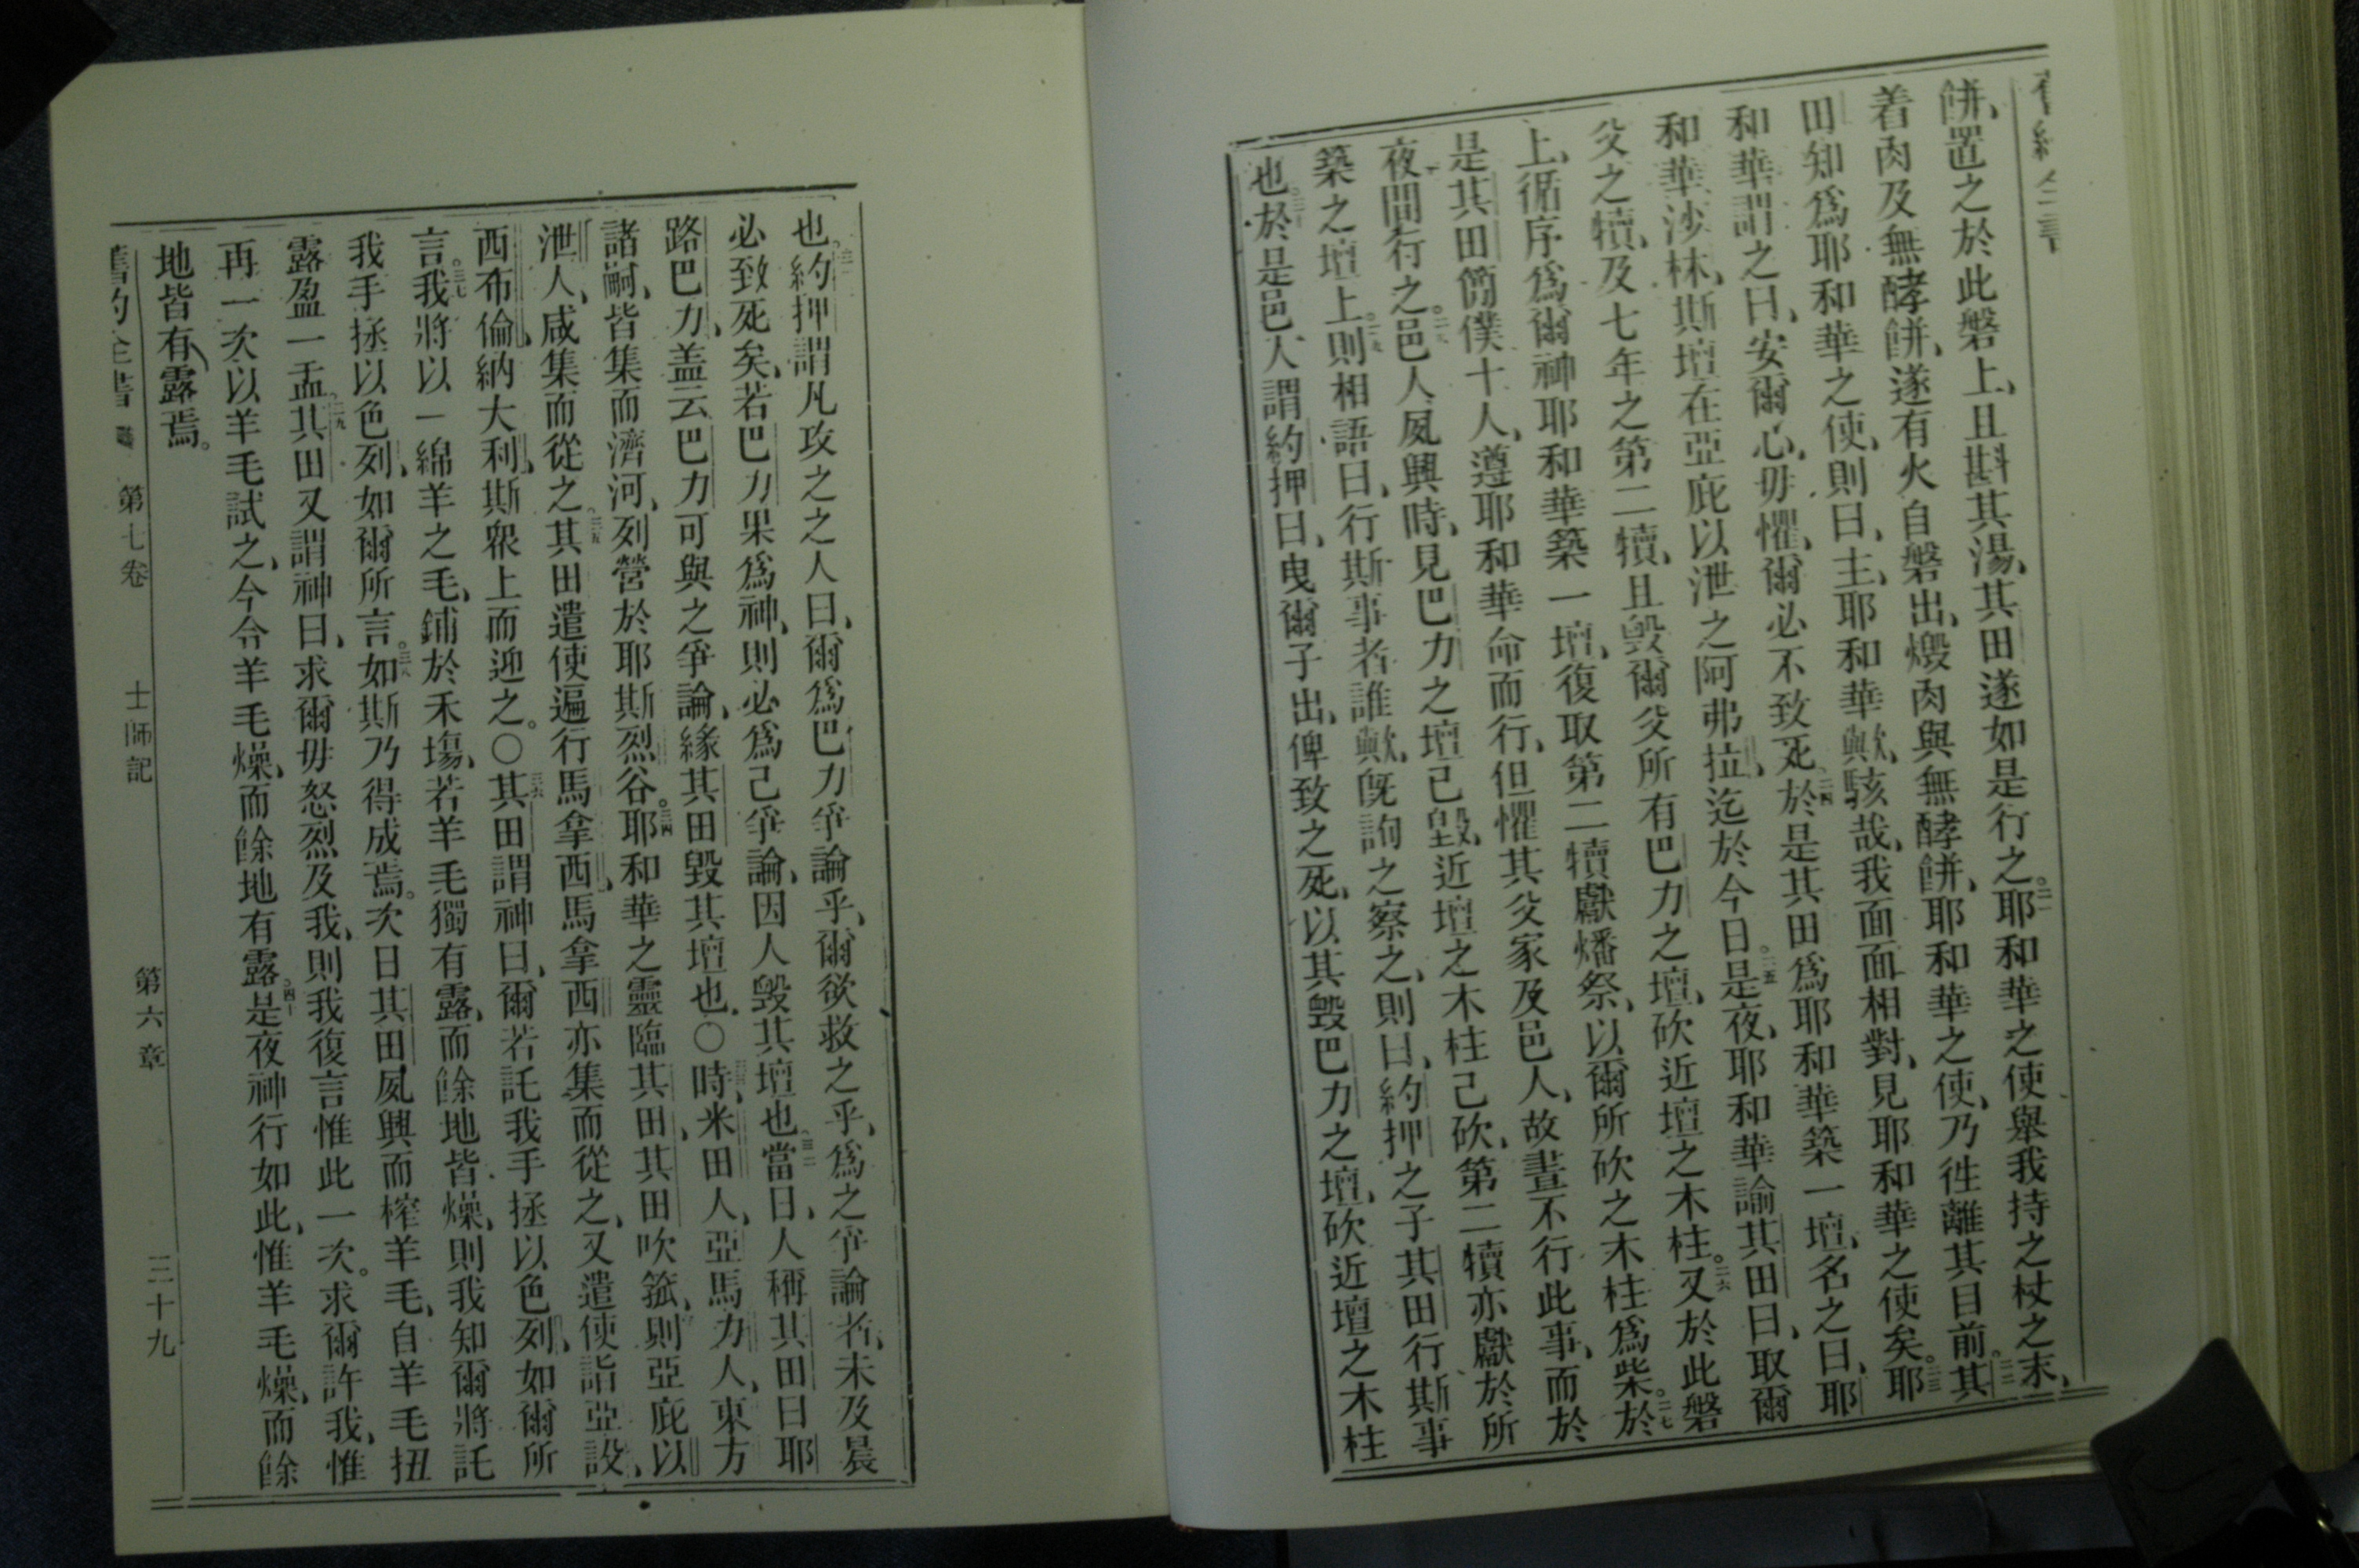 餅、置之於此磐上、且斟其湯、其田遂如是行之。二一耶和華之使舉我持之杖之末、
着肉及無酵餅、遂有火自磐出、燬肉與無酵餅、耶和華之使、乃徃離其目前。二二其
田知爲耶和華之使、則曰、主、耶和華歟、駭哉、我面面相對、見耶和華之使矣。二三耶
和華謂之曰、安爾心、毋懼、爾必不致死、二四於是其田爲耶和華築一壇、名之曰、耶
和華沙林、斯壇在亞庇以泄之阿弗拉、迄於今日。二五是夜、耶和華諭其田曰、取爾
父之犢、及七年之第二犢、且毀爾父所有巴力之壇、砍近壇之木柱。二六又於此磐
上、循序爲爾神耶和華築一壇、復取第二犢獻燔祭、以爾所砍之木柱爲柴。二七於
是其田簡僕十人、遵耶和華命而行、但懼其父家及邑人、故晝不行此事、而於
夜間行之。二八邑人夙興時、見巴力之壇已毀、近壇之木柱已砍、第二犢亦獻於所
築之壇上。二九則相語曰、行斯事者誰歟、旣詢之察之、則曰、約押之子其田行斯事
也。三十於是邑人謂約押曰、曳爾子出、俾致之死、以其毀巴力之壇、砍近壇之木柱
也。三一約押謂凡攻之之人曰、爾爲巴力爭論乎、爾欲救之乎、爲之爭論者、未及晨
必致死矣、若巴力果爲神、則必爲己爭論、因人毀其壇也。三二當日、人稱其田曰耶
路巴力、盖云、巴力可與之爭論、緣其田毀其壇也。〇三三時、米田人、亞馬力人、東方
諸嗣、皆集而濟河、列營於耶斯烈谷。三四耶和華之靈臨其田、其田吹箛、則亞庇以
泄人、咸集而從之。三五其田遣使遍行馬拿西、馬拿西亦集而從之、又遣使詣亞設、
西布倫、納大利、斯衆上而迎之。〇三六其田謂神曰、爾若託我手拯以色列、如爾所
言。三七我將以一綿羊之毛、鋪於禾塲、若羊毛獨有露、而餘地皆燥、則我知爾將託
我手拯以色列、如爾所言。三八如斯乃得成焉。次日其田夙興而榨羊毛、自羊毛扭
露盈一盂。三九其田又謂神曰、求爾毋怒烈及我、則我復言惟此一次。求爾許我、惟
再一次以羊毛試之、今令羊毛燥、而餘地有露。四十是夜神行如此、惟羊毛燥、而餘
地皆有露焉。
舊約全書 第七卷 士師記 第六章 三十九